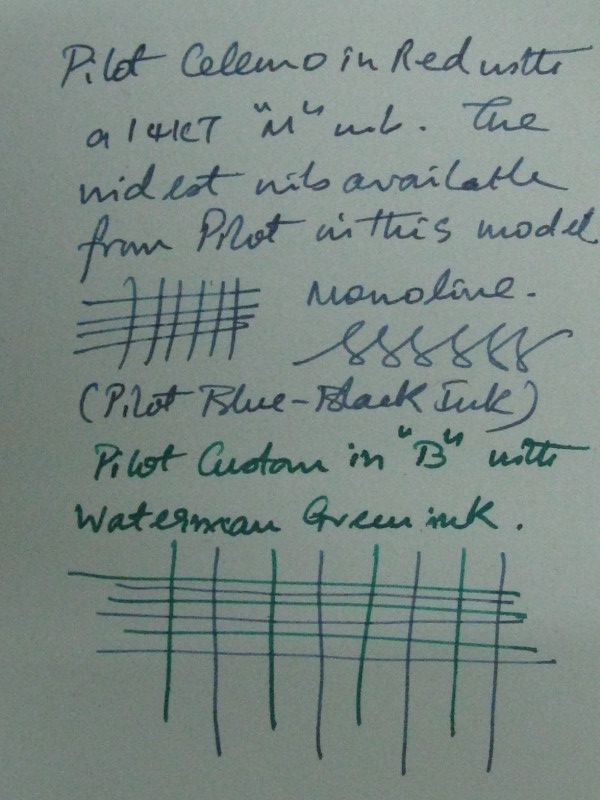 Pilot Celemo in Red with
a 14KT "M" nib. The
widest nib available
from Pilot in this model
Monoline.
(Pilot Blue-Black Ink)
Pilot Custom in "B" with
Waterman Green ink.